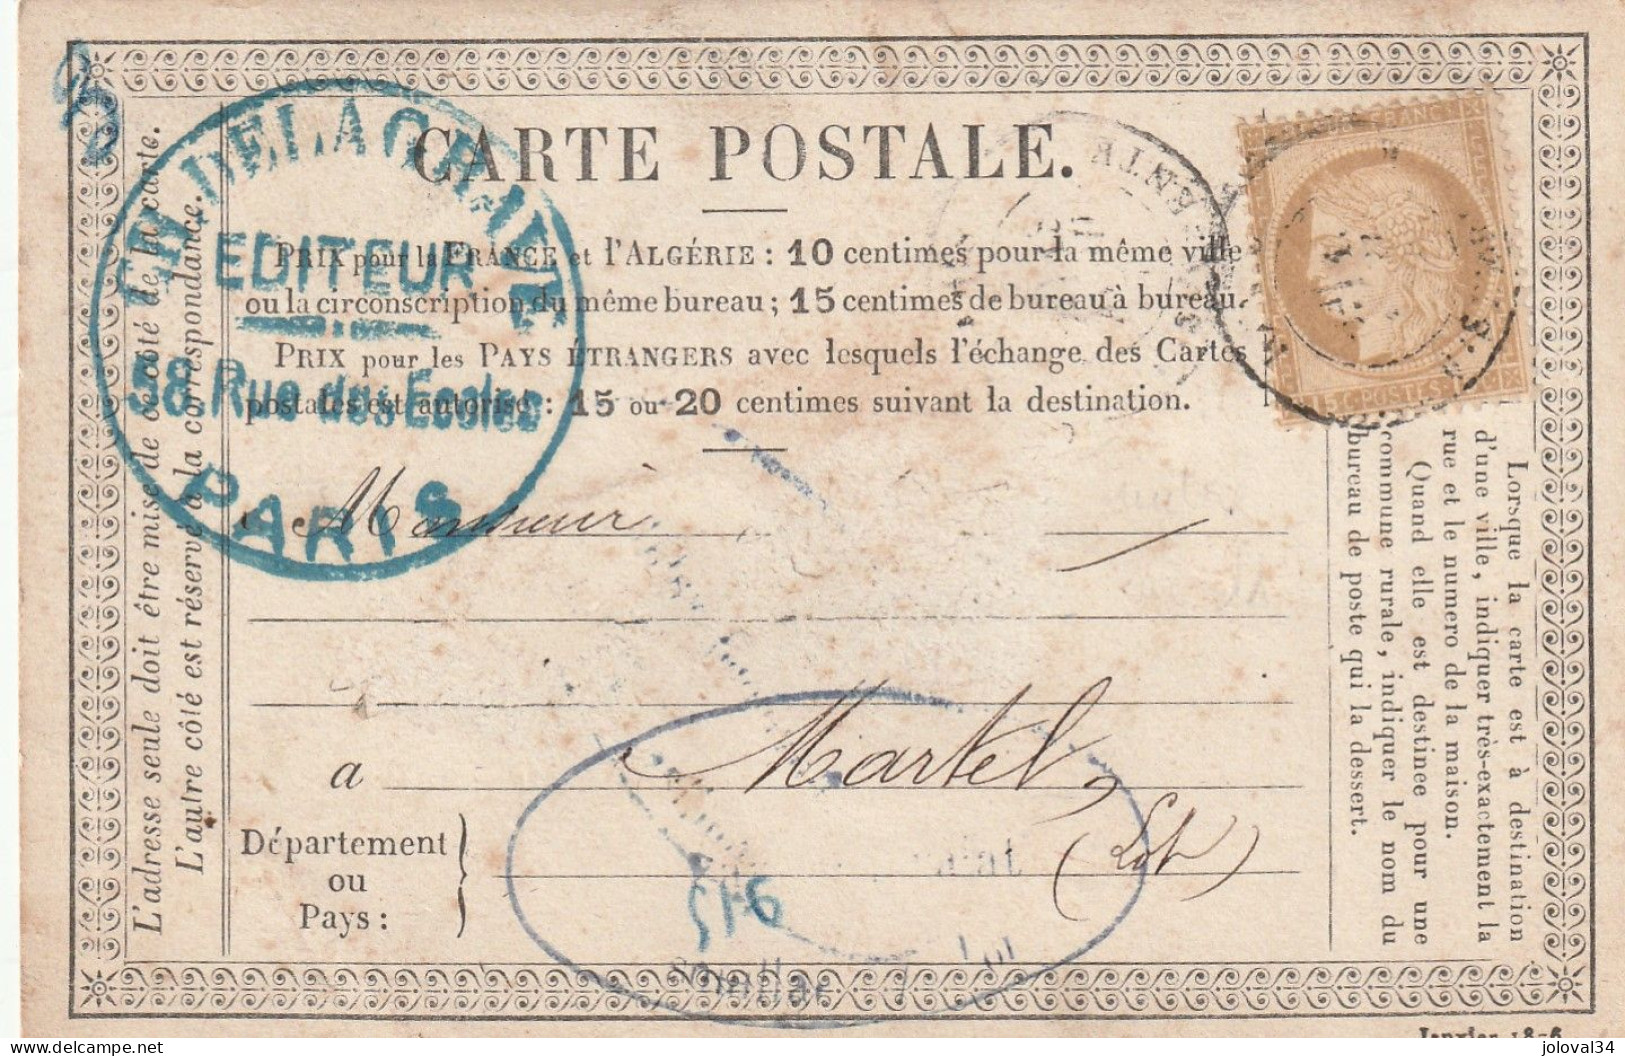 CARTE POSTALE.
CH. DELAGRAVE
EDITEUR
58. Rue des Ecoles
PARIS
PRIX pour la FRANCE et l'ALGÉRIE : 10 centimes pour la même ville
ou la circonscription du même bureau ; 15 centimes de bureau à bureau.
PRIX pour les PAYS ÉTRANGERS avec lesquels l'échange des Cartes
postales est autorisé : 15 ou 20 centimes suivant la destination.
L'adresse seule doit être mise de ce côté de la carte.
L'autre côté est réservé à la correspondance.
FRANC
15 C. POSTES
Monsieur
a Martel,
Département
ou
Pays :
(Lot)
516
Lorsque la carte est à destination
d'une ville, indiquer très-exactement la
rue et le numero de la maison.
Quand elle est destinee pour une
commune rurale, indiquer le nom du
bureau de poste qui la dessert.
Janvier 18-6
delcampe.net
joloval34